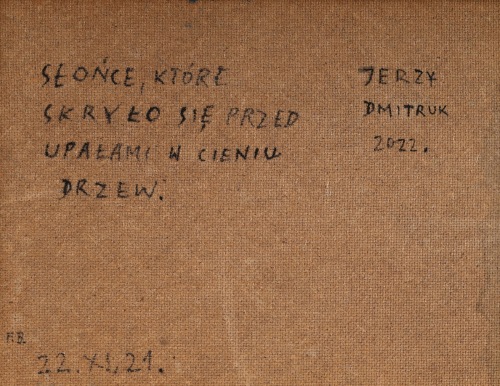 SŁOŃCE, KTÓRE
SKRYŁO SIĘ PRZED
UPAŁAMI W CIENIU
DRZEW.
JERZY
DMITRUK
2022.
F.B.
22. XI. 21.